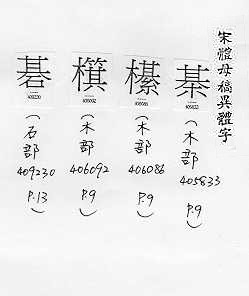 宋體母稿異體字
棊
405833
(木部
405833
P.9)
406086
(木部
406086
P.9)
406092
(木部
406092
P.9)
碁
409230
(石部
409230
P.13)